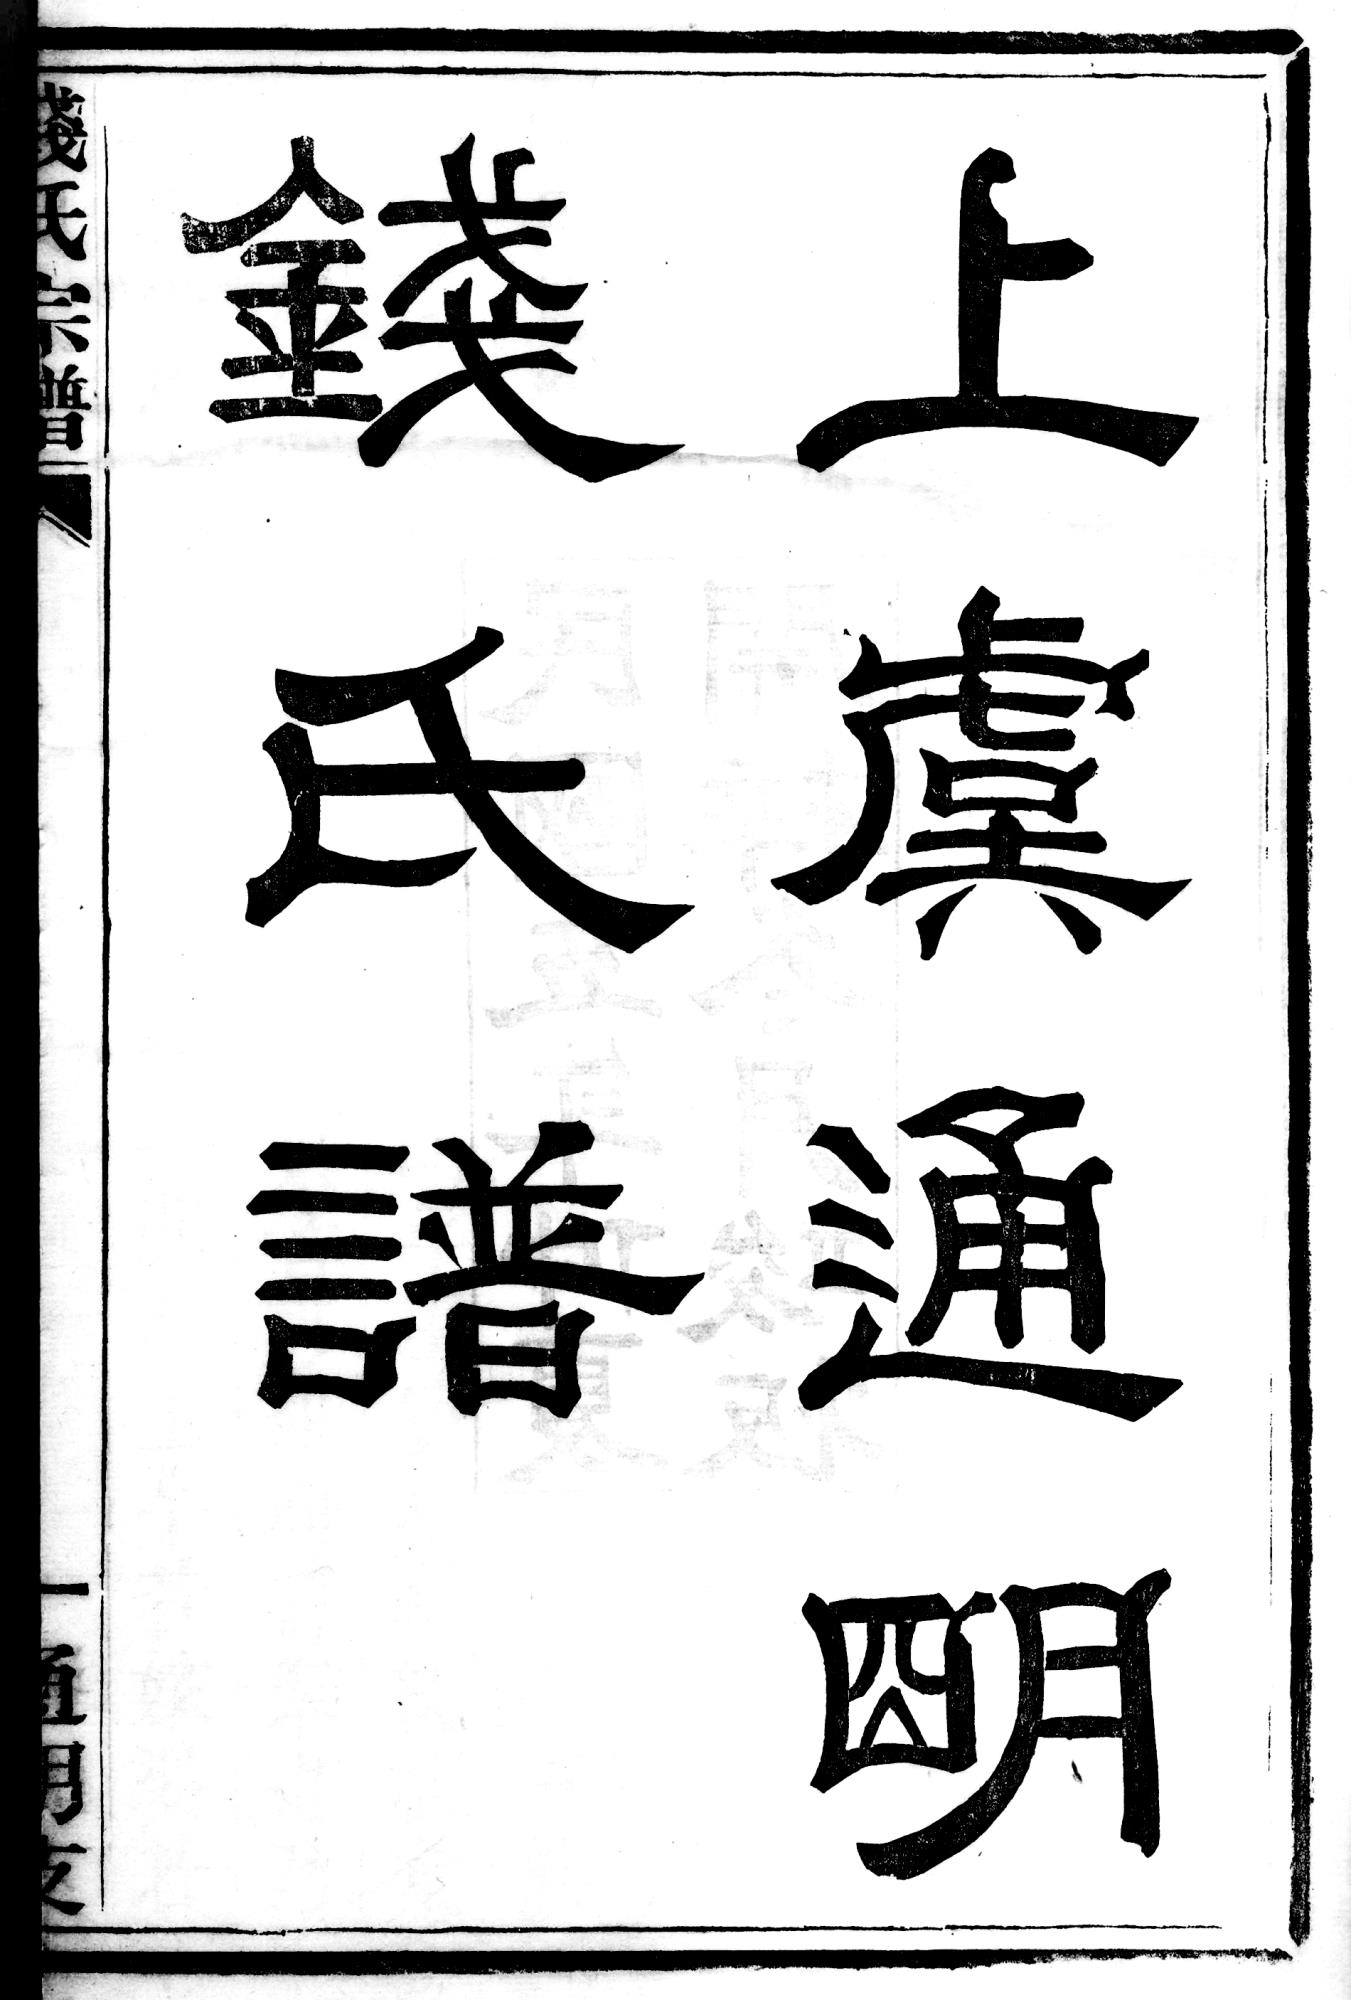 上虞通明
錢氏譜
錢氏宗譜
一
通明支